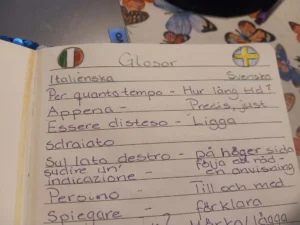 Glosor
Italienska Svenska
Per quanto tempo - Hur lång tid?
Appena - Precis, just
Essere disteso - Ligga
sdraiato
Sul lato destro - på höger sida
sudire un' följa ett råd
indicazione - en anvisning
Persino - Till och med
Spiegare - förklara